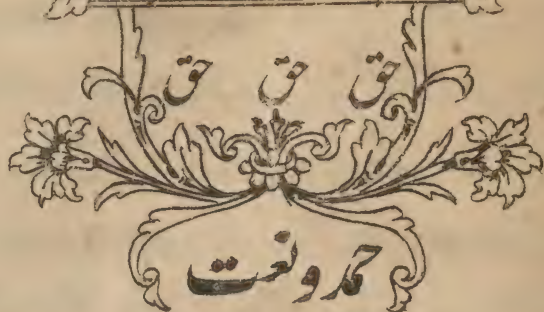 حق حق حق
حمد و نعت